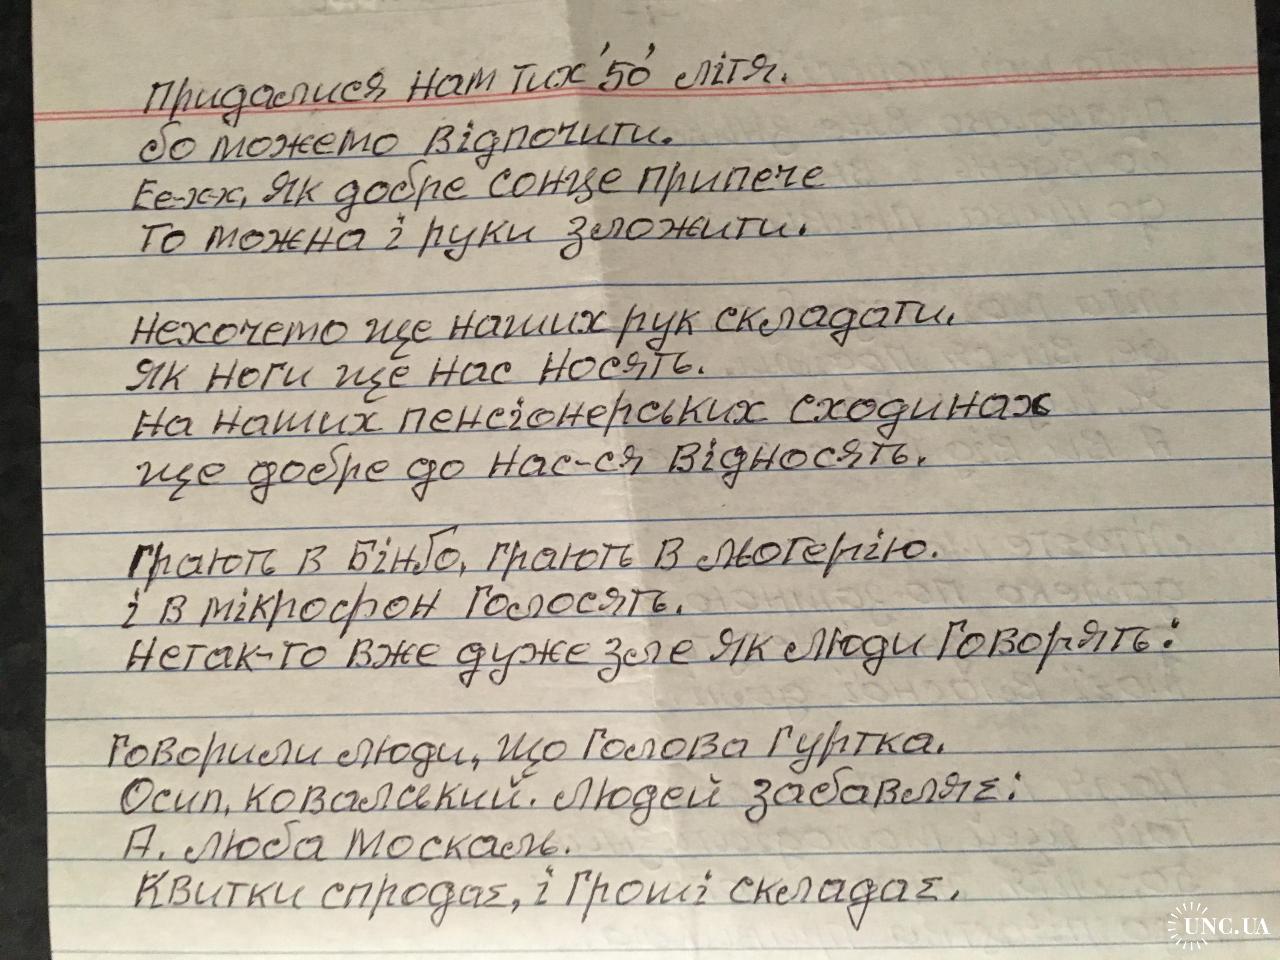 Придалися нам тих '50' літя.
бо можемо відпочити.
Ее-х-х, як добре сонце припече
то можна і руки зложити.
Нехочемо ще наших рук складати.
як ноги ще нас носять.
на наших пенсіонерських сходинах
ще добре до нас-ся відносять.
грають в Бінго, грають в льотерію.
і в мікрофон голосять.
нетак-то вже дуже зле як люди говорять:
Говорили люди, що голова гуртка.
Осип, ковалський. людей забавляє:
А. люба москаль.
Квитки спродає, і гроші складає.
UNC.UA